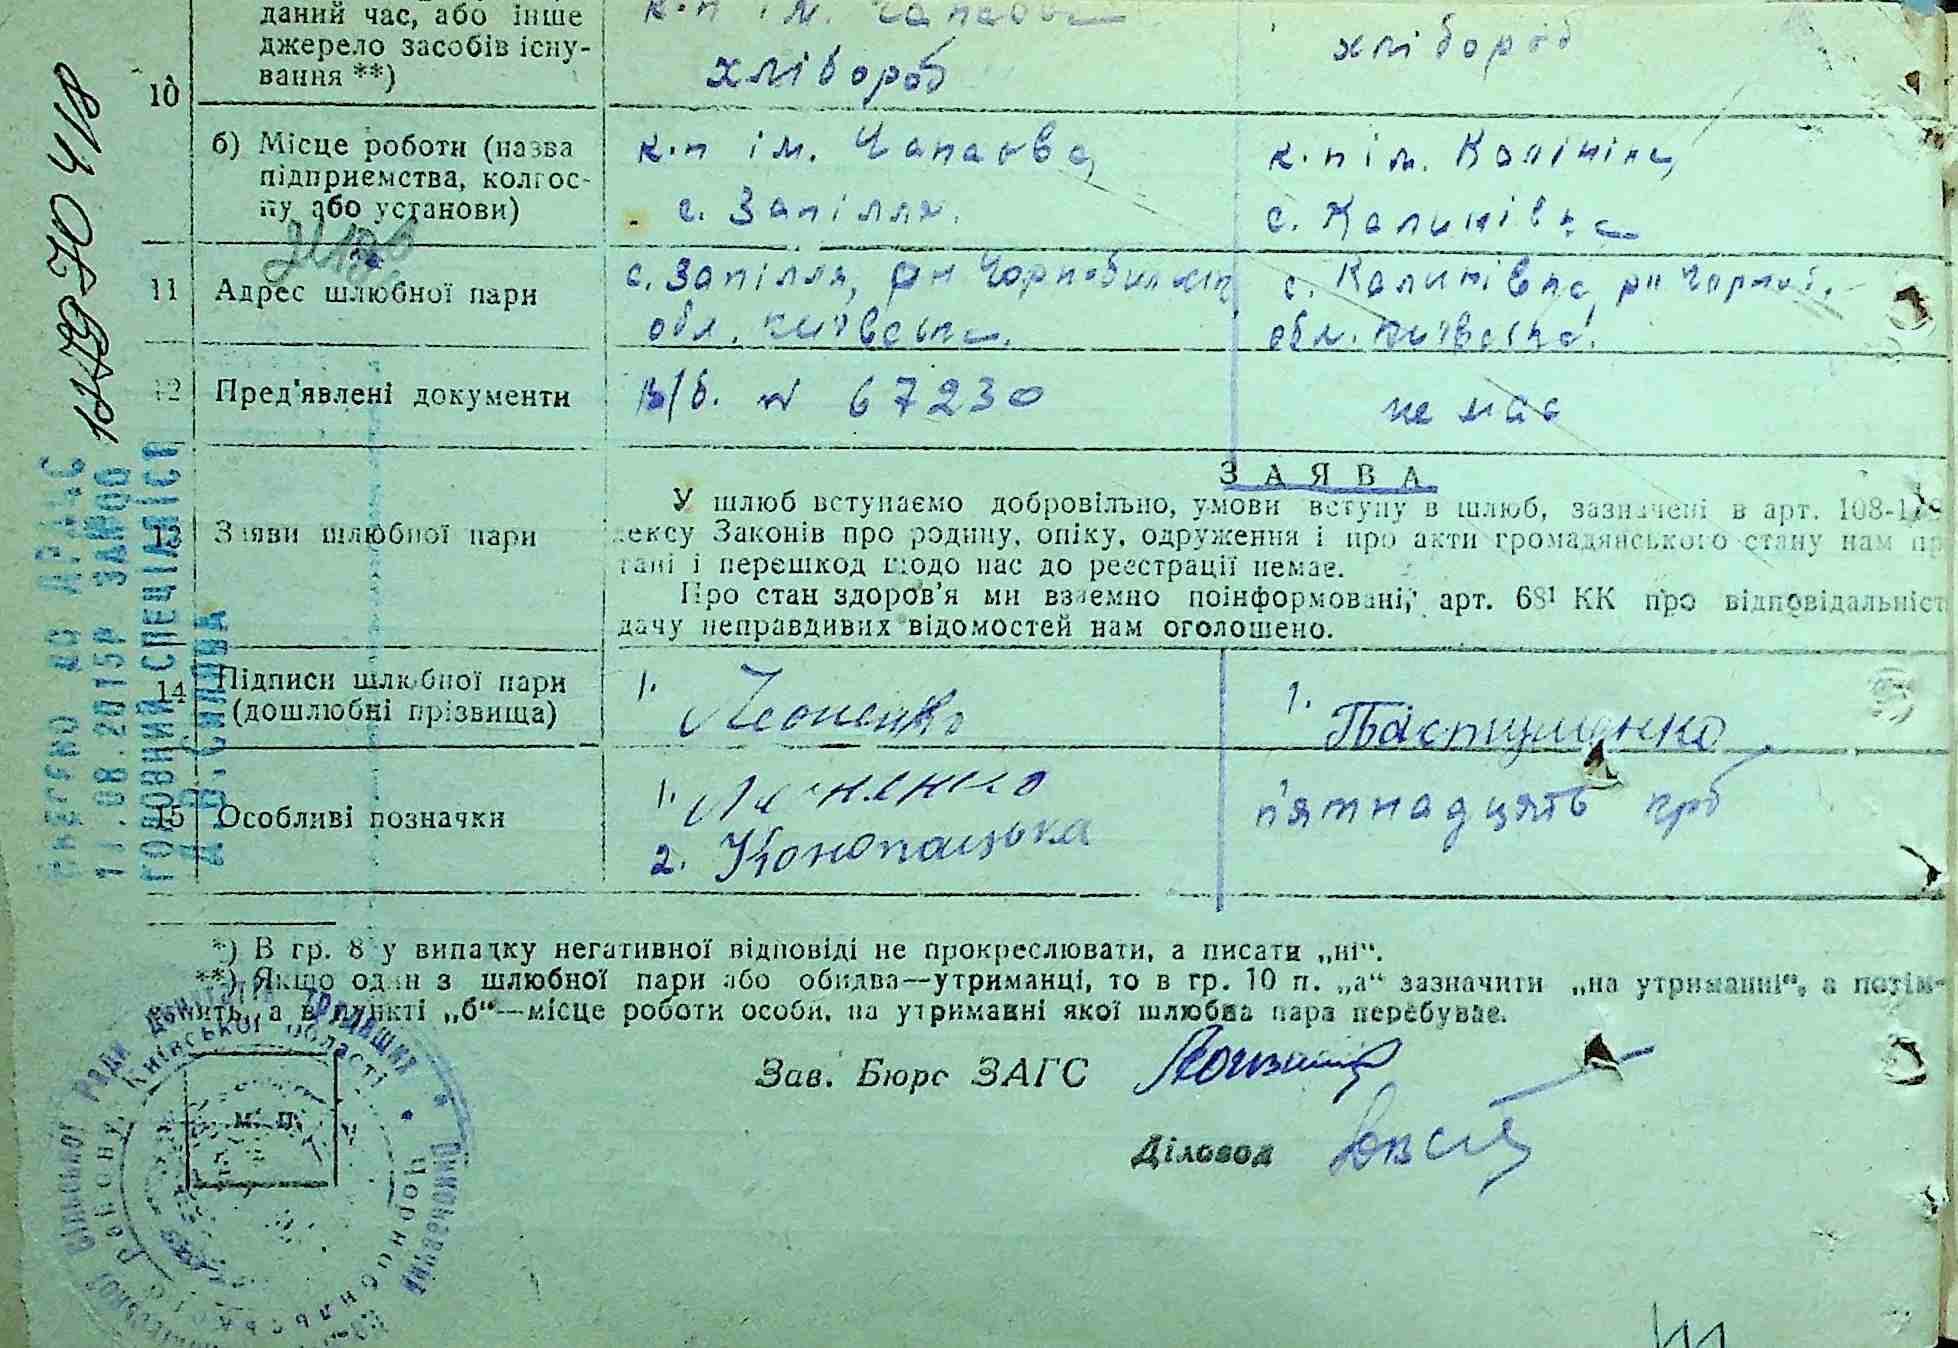 даний час, або інше
джерело засобів існу-
вання **)
к.п ім. Чапаєва
хлібороб
хлібороб
10
б) Місце роботи (назва
підприємства, колгос-
пу або установи)
к.п ім. Чапаєва,
с. Запілля.
к.п ім. Калініна,
с. Калинівка
11 Адрес шлюбної пари
с. Запілля, рн Чорнобильськ
обл. Київська.
с. Калинівка, рн Чорноб.
обл. Київська.
12 Пред'явлені документи
в/б. № 67230
не має
ЗАЯВА
13 Заяви шлюбної пари
У шлюб вступаємо добровільно, умови вступу в шлюб, зазначені в арт. 108-1
ексу Законів про родину, опіку, одруження і про акти громадянського стану нам пр
тані і перешкод щодо нас до реєстрації немає.
Про стан здоров'я ми взаємно поінформовані, арт. 68¹ КК про відповідальніст
дачу неправдивих відомостей нам оголошено.
14 Підписи шлюбної пари
(дошлюбні прізвища)
1. Леоненко
1. Пастушенко
15 Особливі позначки
1. Леоненко
2. Конопацька
п'ятнадцять крб
*) В гр. 8 у випадку негативної відповіді не прокреслювати, а писати „ні“.
**) Якщо один з шлюбної пари або обидва—утриманці, то в гр. 10 п. „а“ зазначити „на утриманні“, а потім-
мить, а в пункті „б“—місце роботи особи, на утриманні якої шлюбна пара перебуває.
Зав. Бюро ЗАГС
Діловод
М. П.
Київської області
ВНЕСЕНО ДО ДРАЦС
11.08.2015Р ЗА№00
119970418
ГОЛОВНИЙ СПЕЦІАЛІСТ